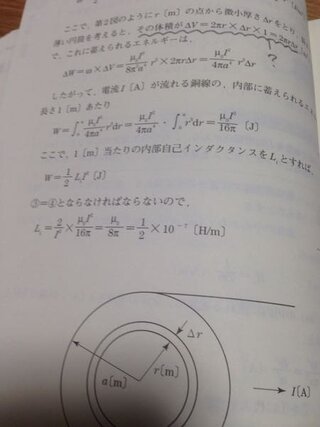 ここで、第2図のように r〔m〕の点から微小厚さΔrをとり、
薄い円筒を考えると、その体積が ΔV=2πr×Δr×1=2πrΔr
で、これに蓄えられるエネルギーは、
?
ΔW=w×ΔV=μ₀I²/8π²a⁴ r²×2πrΔr=μ₀I²/4πa⁴ r³Δr
したがって、電流 I〔A〕が流れる銅線の、内部に蓄えられるエネ
長さ1〔m〕あたり
W=∫₀ᵃ μ₀I²/4πa⁴ r³dr=μ₀I²/4πa⁴・∫₀ᵃ r³dr=μ₀I²/16π〔J〕
ここで、1〔m〕当たりの内部自己インダクタンスをLᵢとすれば、
W=1/2 LᵢI²〔J〕
③=④とならなければならないので、
Lᵢ=2/I²×μ₀I²/16π=μ₀/8π=1/2×10⁻⁷〔H/m〕
Δr
a〔m〕
r〔m〕
I〔A〕